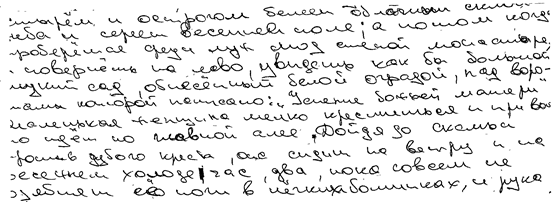 и острогом белеет облачный склон
неба и сереет весеннее поле; а потом когда
проберёшься среди луж под стеной монастыря
и повернёшь на лево, увидишь как бы большой
низкий сад, обнесённый белой оградой, над воро-
тами которой написано: „Успение божьей матери"
маленькая женщина мелко крестится и привы
но идёт по главной алее. Дойдя до скамьи
против дубого креста, она сидит на ветру и на
весеннем холоде час, два, пока совсем не
озябнут её ноги в лёгких ботинках, и рука